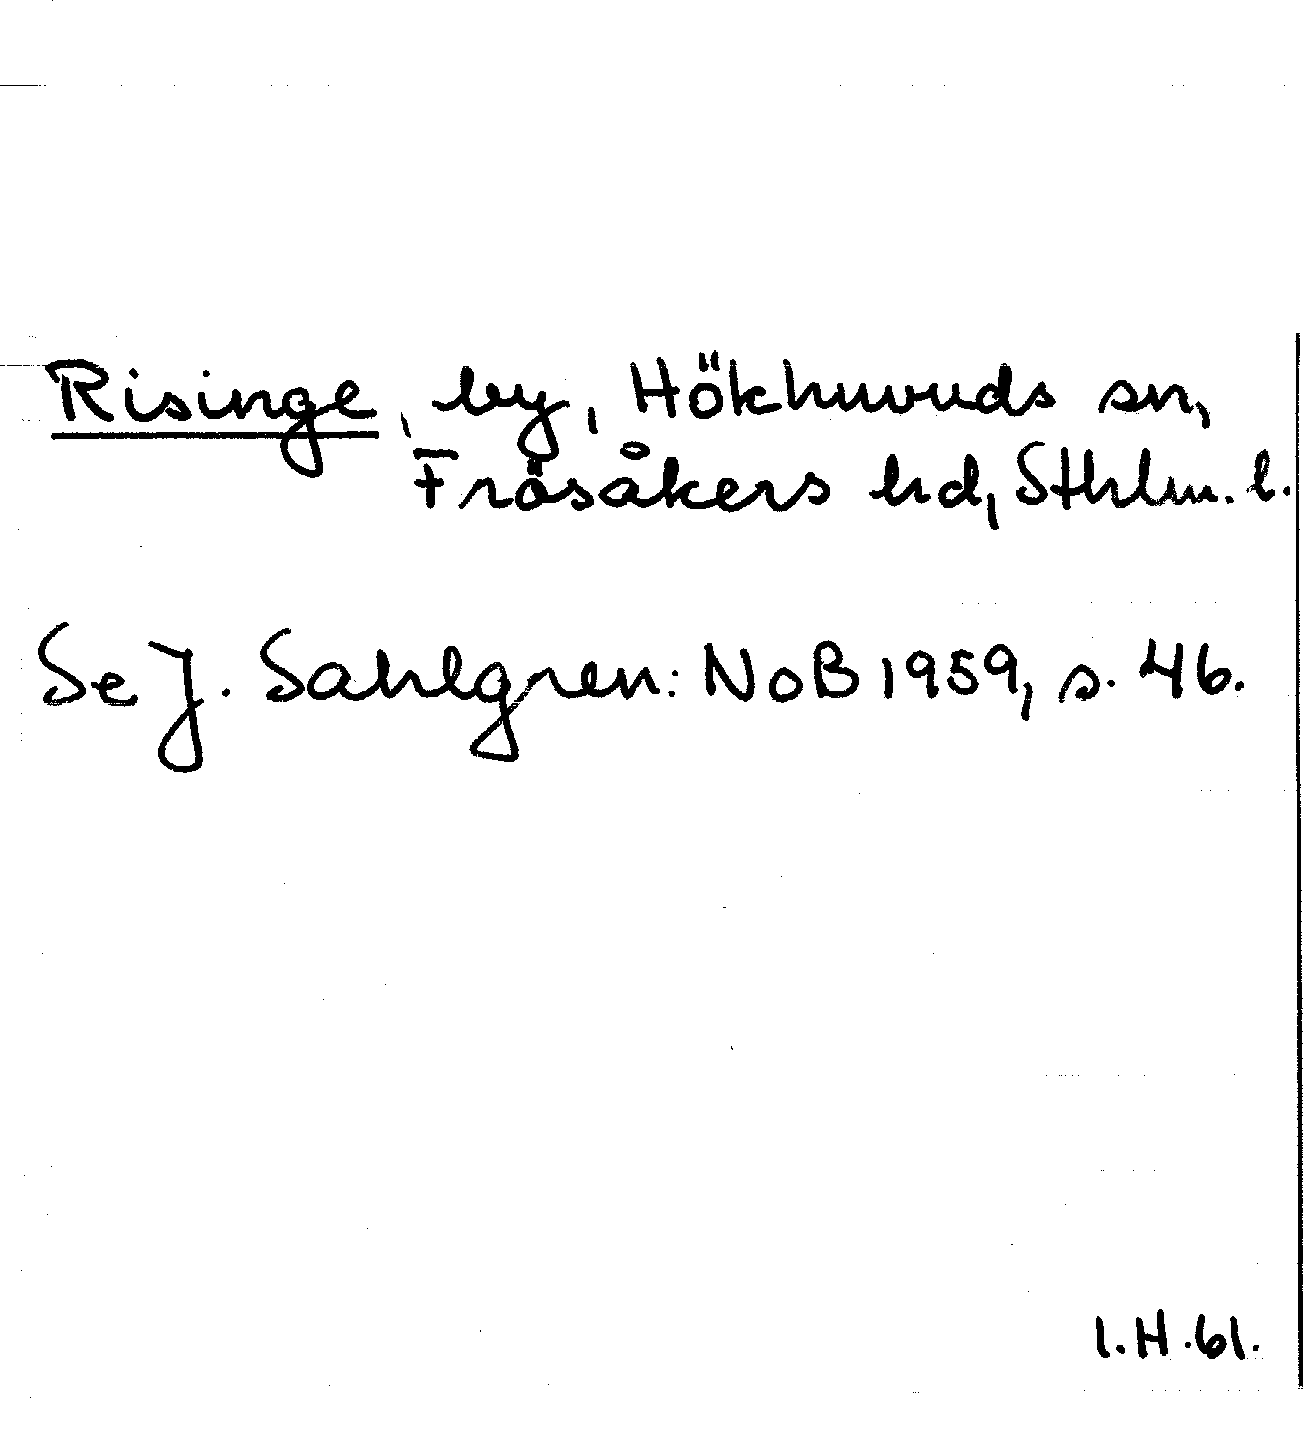 Risinge, by, Hökhuvuds sn,
Frösåkers hd, Sthlm. l.
Se J. Sahlgren: NoB 1959, s. 46.
I.H.61.